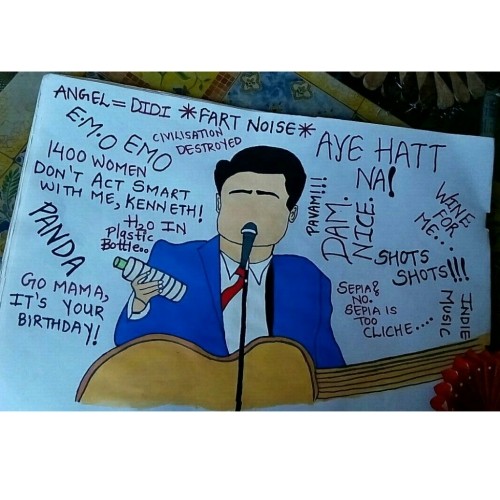 ANGEL = DIDI *FART NOISE*
E.M.O EMO
CIVILISATION
DESTROYED
AYE HATT
NA!
1400 WOMEN
DON'T ACT SMART
WITH ME, KENNETH!
H2O IN
Plastic
Bottle..
PAVAM!!!
DAM.
NICE.
WINE
FOR
ME...
PANDA
SHOTS
SHOTS!!!
GO MAMA,
IT'S YOUR
BIRTHDAY!
SEPIA?
NO.
SEPIA IS
TOO
CLICHE....
INDIE
MUSIC